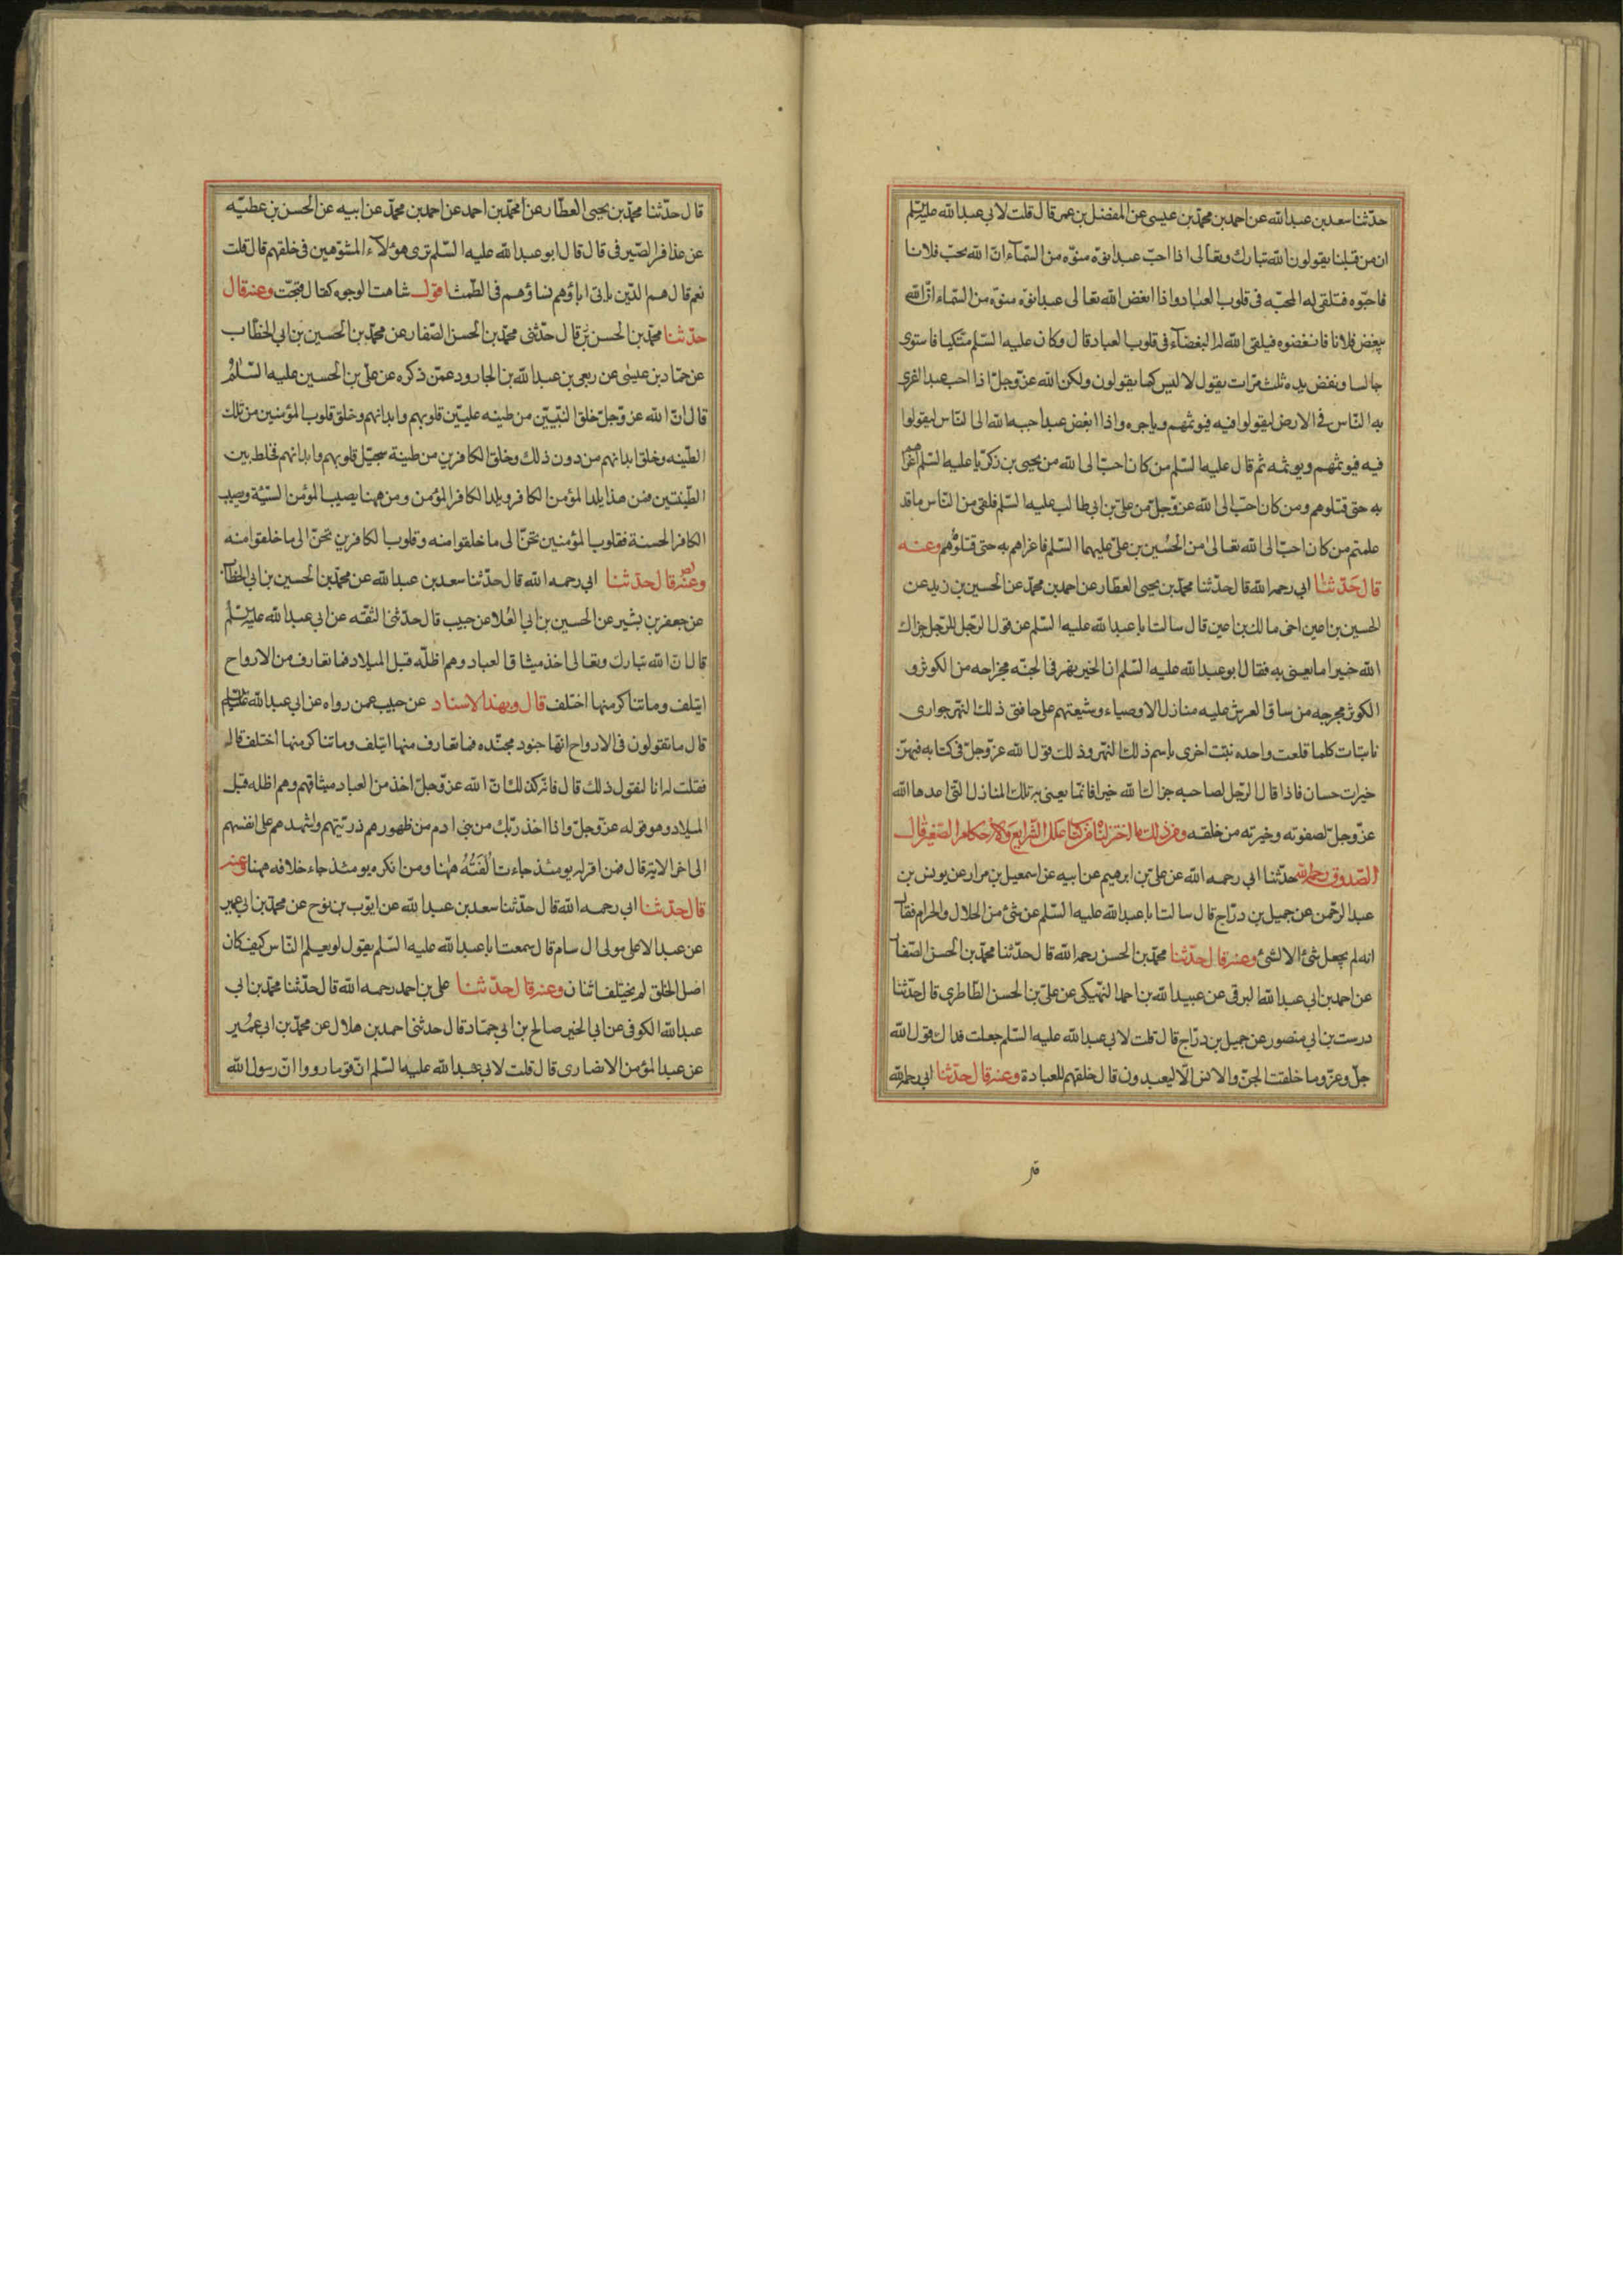 حدّثنا سعد بن عبد الله عن احمد بن محمّد بن عيسى عن المفضل بن عمر قال قلت لابي عبد الله عليه السّلم
ان من قبلنا يقولون ان الله تبارك وتعالى اذا احبّ عبدا نوّه منوّه من السّمآء انّ الله يحبّ فلانا
فاحبّوه فتلقى له المحبّه فى قلوب العباد واذا ابغض الله تعالى عبدا نوّه منوّه من السّماء انّ الله
يبغض فلانا فابغضوه فيلقى الله له البغضآء فى قلوب العباد قال وكان عليه السّلم متّكيا فاستوى
جالسا ونفض يده ثلث مرّات يقول لا ليس كما يقولون ولكن الله عزّ وجلّ اذا احب عبدا اغرى
به النّاس فى الارض ليقولوا فيه فيوثمهم وياجره واذا ابغض عبدا حببه الله الى النّاس ليقولوا
فيه فيوثمهم ويوثمه ثم قال عليه السّلم من كان احبّ الى الله من يحيى بن زكريّا عليه السّلم اغراهم
به حتى قتلوه ومن كان احبّ الى الله عزّ وجلّ من علىّ بن ابى طالب عليه السّلم فلقى من النّاس ما قد
علمتم من كان احبّ الى الله تعالى من الحُسين بن علىّ عليهما السّلم فاغراهم به حتى قتلوُهم وعنه
قال حَدّثنا ابي رحمه الله قال حدّثنا محمّد بن يحيى العطار عن احمد بن محمّد عن الحسين بن زيد عن
الحسين بن اعين اخى مالك بن اعين قال سالت ابا عبد الله عليه السّلم عن قول الرّجل للرّجل جزاك
الله خيرا ما يعنى به فقال ابو عبد الله عليه السّلم ان الخير نهر فى الجنّه مخرجه من الكوثر و
الكوثر مخرجه من ساق العرش عليه منازل الاوصياء وشيعتهم على حافتى ذلك النّهر جوارى
نابتات كلما قلعت واحده نبتت اخرى باسم ذلك النّهر وذلك قول الله عزّ وجلّ فى كتابه فيهنّ
خيرات حسان فاذا قال الرّجل لصاحبه جزاك الله خيرا فانّما يعنى به تلك المنازل التّى اعدها الله
عزّ وجلّ لصفوته وخيرته من خلقه ومن ذلك ما اخترناه من كتاب علل الشّرايع والاحكام الصّغير قال
الصّدوق رحمه الله حدّثنا ابي رحمه الله عن علىّ بن ابرهيم عن ابيه عن اسمعيل بن مرار عن يونس بن
عبد الرّحمن عن جميل بن درّاج قال سالت ابا عبد الله عليه السّلم عن شئ من الحلال والحرام فقال
انه لم يجعل شئ الا لشئ وعنه قال حدّثنا محمّد بن الحسن رحمه الله قال حدّثنا محمّد بن الحسن الصّفار
عن احمد بن ابي عبد الله البرقى عن عبيد الله بن احمد النّهيكى عن علىّ بن الحسن الطّاطرى قال حدّثنا
درست بن ابي منصور عن جميل بن درّاج قال قلت لابي عبد الله عليه السّلم جعلت فداك قول الله
جلّ وعزّ وما خلقت الجنّ والانس الّا ليعبدون قال خلقهم للعبادة وعنه قال حدّثنا ابي رحمه الله
قال حدّثنا محمّد بن يحيى العطّار عن محمّد بن احمد عن احمد بن محمّد عن ابيه عن الحسن بن عطيّه
عن عذافر الصّيرفى قال قال ابو عبد الله عليه السّلم ترى هؤلآء المشوّهين فى خلقهم قال قلت
نعم قال هم الذّين ياتى اباؤهم نساؤهم فى الطّمث اقول شاهت الوجوه كقال قبحّت وعنه قال
حدّثنا محمّد بن الحسن قال حدّثنى محمّد بن الحسن الصّفار عن محمّد بن الحُسين بن ابي الخطّاب
عن حمّاد بن عيسٰى عن ربعى بن عبد الله بن الجارود عمّن ذكره عن علىّ بن الحسين عليه السّلم
قال انّ الله عزّ وجلّ خلق النّبيّين من طينه عليّين قلوبهم وابدانهم وخلق قلوب المؤمنين من تلك
الطّينه وخلق ابدانهم من دون ذلك وخلق الكافرين من طينة سجيّل قلوبهم وابدانهم فخلط بين
الطّينتين فمن هذا يلد المؤمن الكافر ويلد الكافر المؤمن ومن ههنا يصيب المؤمن السّيّئة ويصيب
الكافر الحسنة فقلوب المؤمنين تحنّ الى ما خلقوا منه وقلوب الكافرين تحنّ الى ما خلقوا منه
وعنه قال حدّثنا ابي رحمه الله قال حدّثنا سعد بن عبد الله عن محمّد بن الحسين بن ابي الخطّاب
عن جعفر بن بشير عن الحسين بن ابي العُلا عن حبيب قال حدّثنى الثّقه عن ابي عبد الله عليه السّلم
قال انّ الله تبارك وتعالى اخذ ميثاق العباد وهم اظلّه قبل الميلاد فما تعارف من الارواح
ايتلف وما تناكر منها اختلف قال وبهذا الاسناد عن حبيب عمن رواه عن ابي عبد الله عليه السّلم
قال ما تقولون فى الارواح انّها جنود مجنّده فما تعارف منها ايتلف وما تناكر منها اختلف قال
فقلت له انا لنقول ذلك قال فانّه كذلك انّ الله عزّ وجلّ اخذ من العباد ميثاقهم وهم اظله قبل
الميلاد وهو قوله عزّ وجلّ واذا اخذ ربّك من بنى ادم من ظهورهم ذريّتهم واشهدهم على انفسهم
الى اخر الاية قال فمن اقر له يومئذ جاءت اُلفَتُهُ هٰهنا ومن انكره يومئذ جاء خلافه ههنا وعنه
قال حدّثنا ابي رحمه الله قال حدّثنا سعد بن عبد الله عن ايّوب بن نوح عن محمّد بن ابي عمير
عن عبد الاعلى مولى ال سام قال سمعت ابا عبد الله عليه السّلم يقول لو يعلم النّاس كيف كان
اصل الخلق لم يختلف اثنان وعنه قال حدّثنا على بن احمد رحمه الله قال حدّثنا محمّد بن ابي
عبد الله الكوفى عن ابي الخير صالح بن ابي حمّاد قال حدثنى احمد بن هلال عن محمّد بن ابي عُمير
عن عبد المؤمن الانصارى قال قلت لابي عبد الله عليه السّلم انّ قوما رووا انّ رسول الله